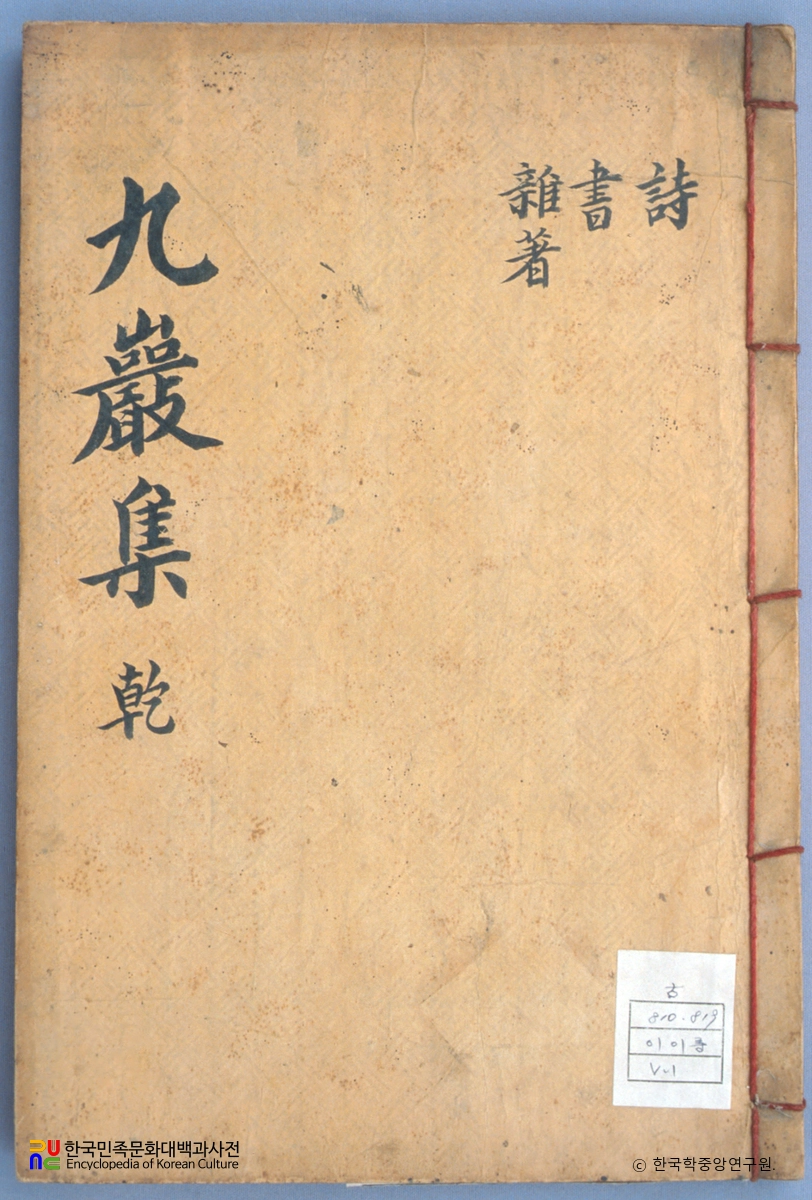 詩
書
雜著
九巖集 乾
古
810.819
이이중
V.1
한국민족문화대백과사전
Encyclopedia of Korean Culture
ⓒ 한국학중앙연구원.